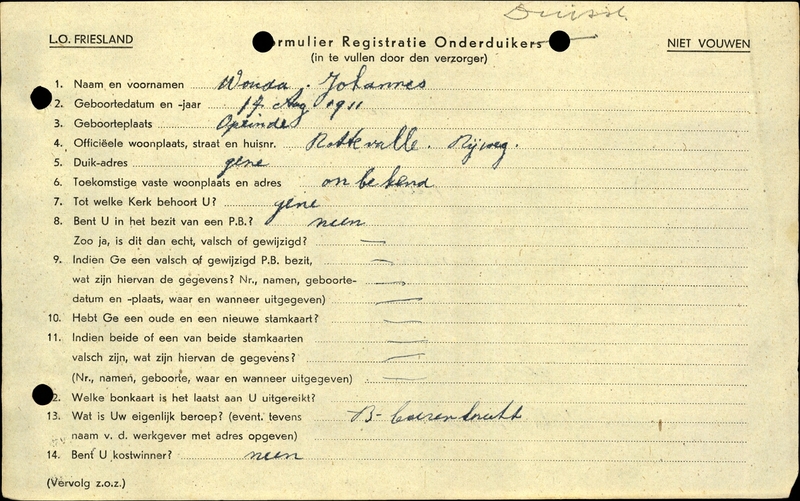 L.O. FRIESLAND
Formulier Registratie Onderduikers
NIET VOUWEN
(in te vullen door den verzorger)
1. Naam en voornamen Wouda. Johannes
2. Geboortedatum en -jaar 14 Aug 1911
3. Geboorteplaats Opeinde
4. Officiëele woonplaats, straat en huisnr. Rottevalle. Rijweg.
5. Duik-adres gene
6. Toekomstige vaste woonplaats en adres onbekend
7. Tot welke Kerk behoort U? gene
8. Bent U in het bezit van een P.B.? neen
Zoo ja, is dit dan echt, valsch of gewijzigd? —
9. Indien Ge een valsch of gewijzigd P.B. bezit, —
wat zijn hiervan de gegevens? Nr., namen, geboorte- —
datum en -plaats, waar en wanneer uitgegeven) —
10. Hebt Ge een oude en een nieuwe stamkaart? —
11. Indien beide of een van beide stamkaarten —
valsch zijn, wat zijn hiervan de gegevens? —
(Nr., namen, geboorte, waar en wanneer uitgegeven) —
2. Welke bonkaart is het laatst aan U uitgereikt?
13. Wat is Uw eigenlijk beroep? (event. tevens B-
naam v. d. werkgever met adres opgeven)
14. Bent U kostwinner? neen
(Vervolg z.o.z.)